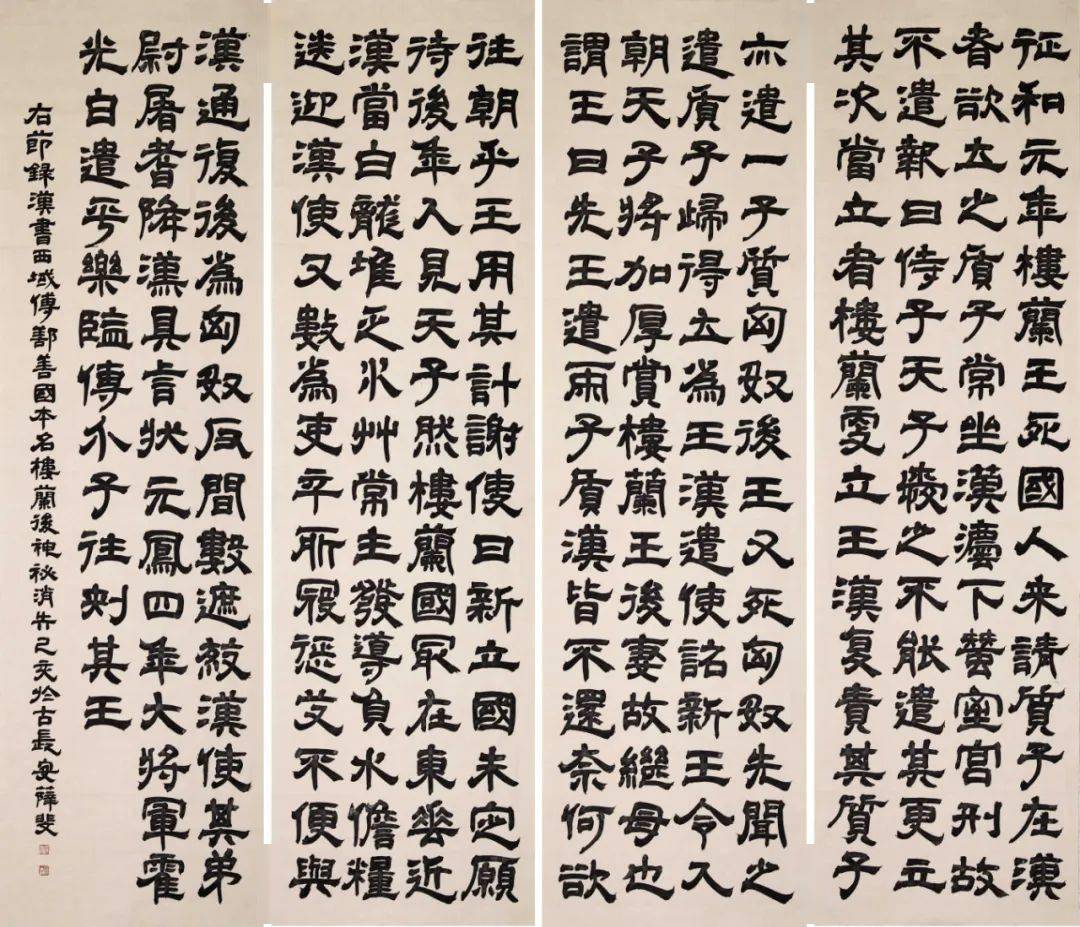 征和元年樓蘭王死國人来請質子在漢
者欲立之質子常坐漢灋下蠶室宮刑故
不遣報曰侍子天子愛之不能遣其更立
其次當立者樓蘭更立王漢复責其質子
亦遣一子質匈奴後王又死匈奴先聞之
遣質子歸得立為王漢遣使詔新王令入
朝天子將加厚賞樓蘭王後妻故繼母也
謂王曰先王遣兩子質漢皆不還柰何欲
往朝乎王用其計謝使曰新立國未定願
待後年入見天子然樓蘭國冣在東垂近
漢當白龍堆乏水艸常主發導負水儋糧
送迎漢使又數為吏卒所寇懲艾不便與
漢通復後為匈奴反間數遮殺漢使其弟
尉屠耆降漢具言狀元鳳四年大將軍霍
光白遣平樂監傅介子往刺其王
右節錄漢書西域傳鄯善國本名樓蘭後神祕消失己亥於古長安薛斐